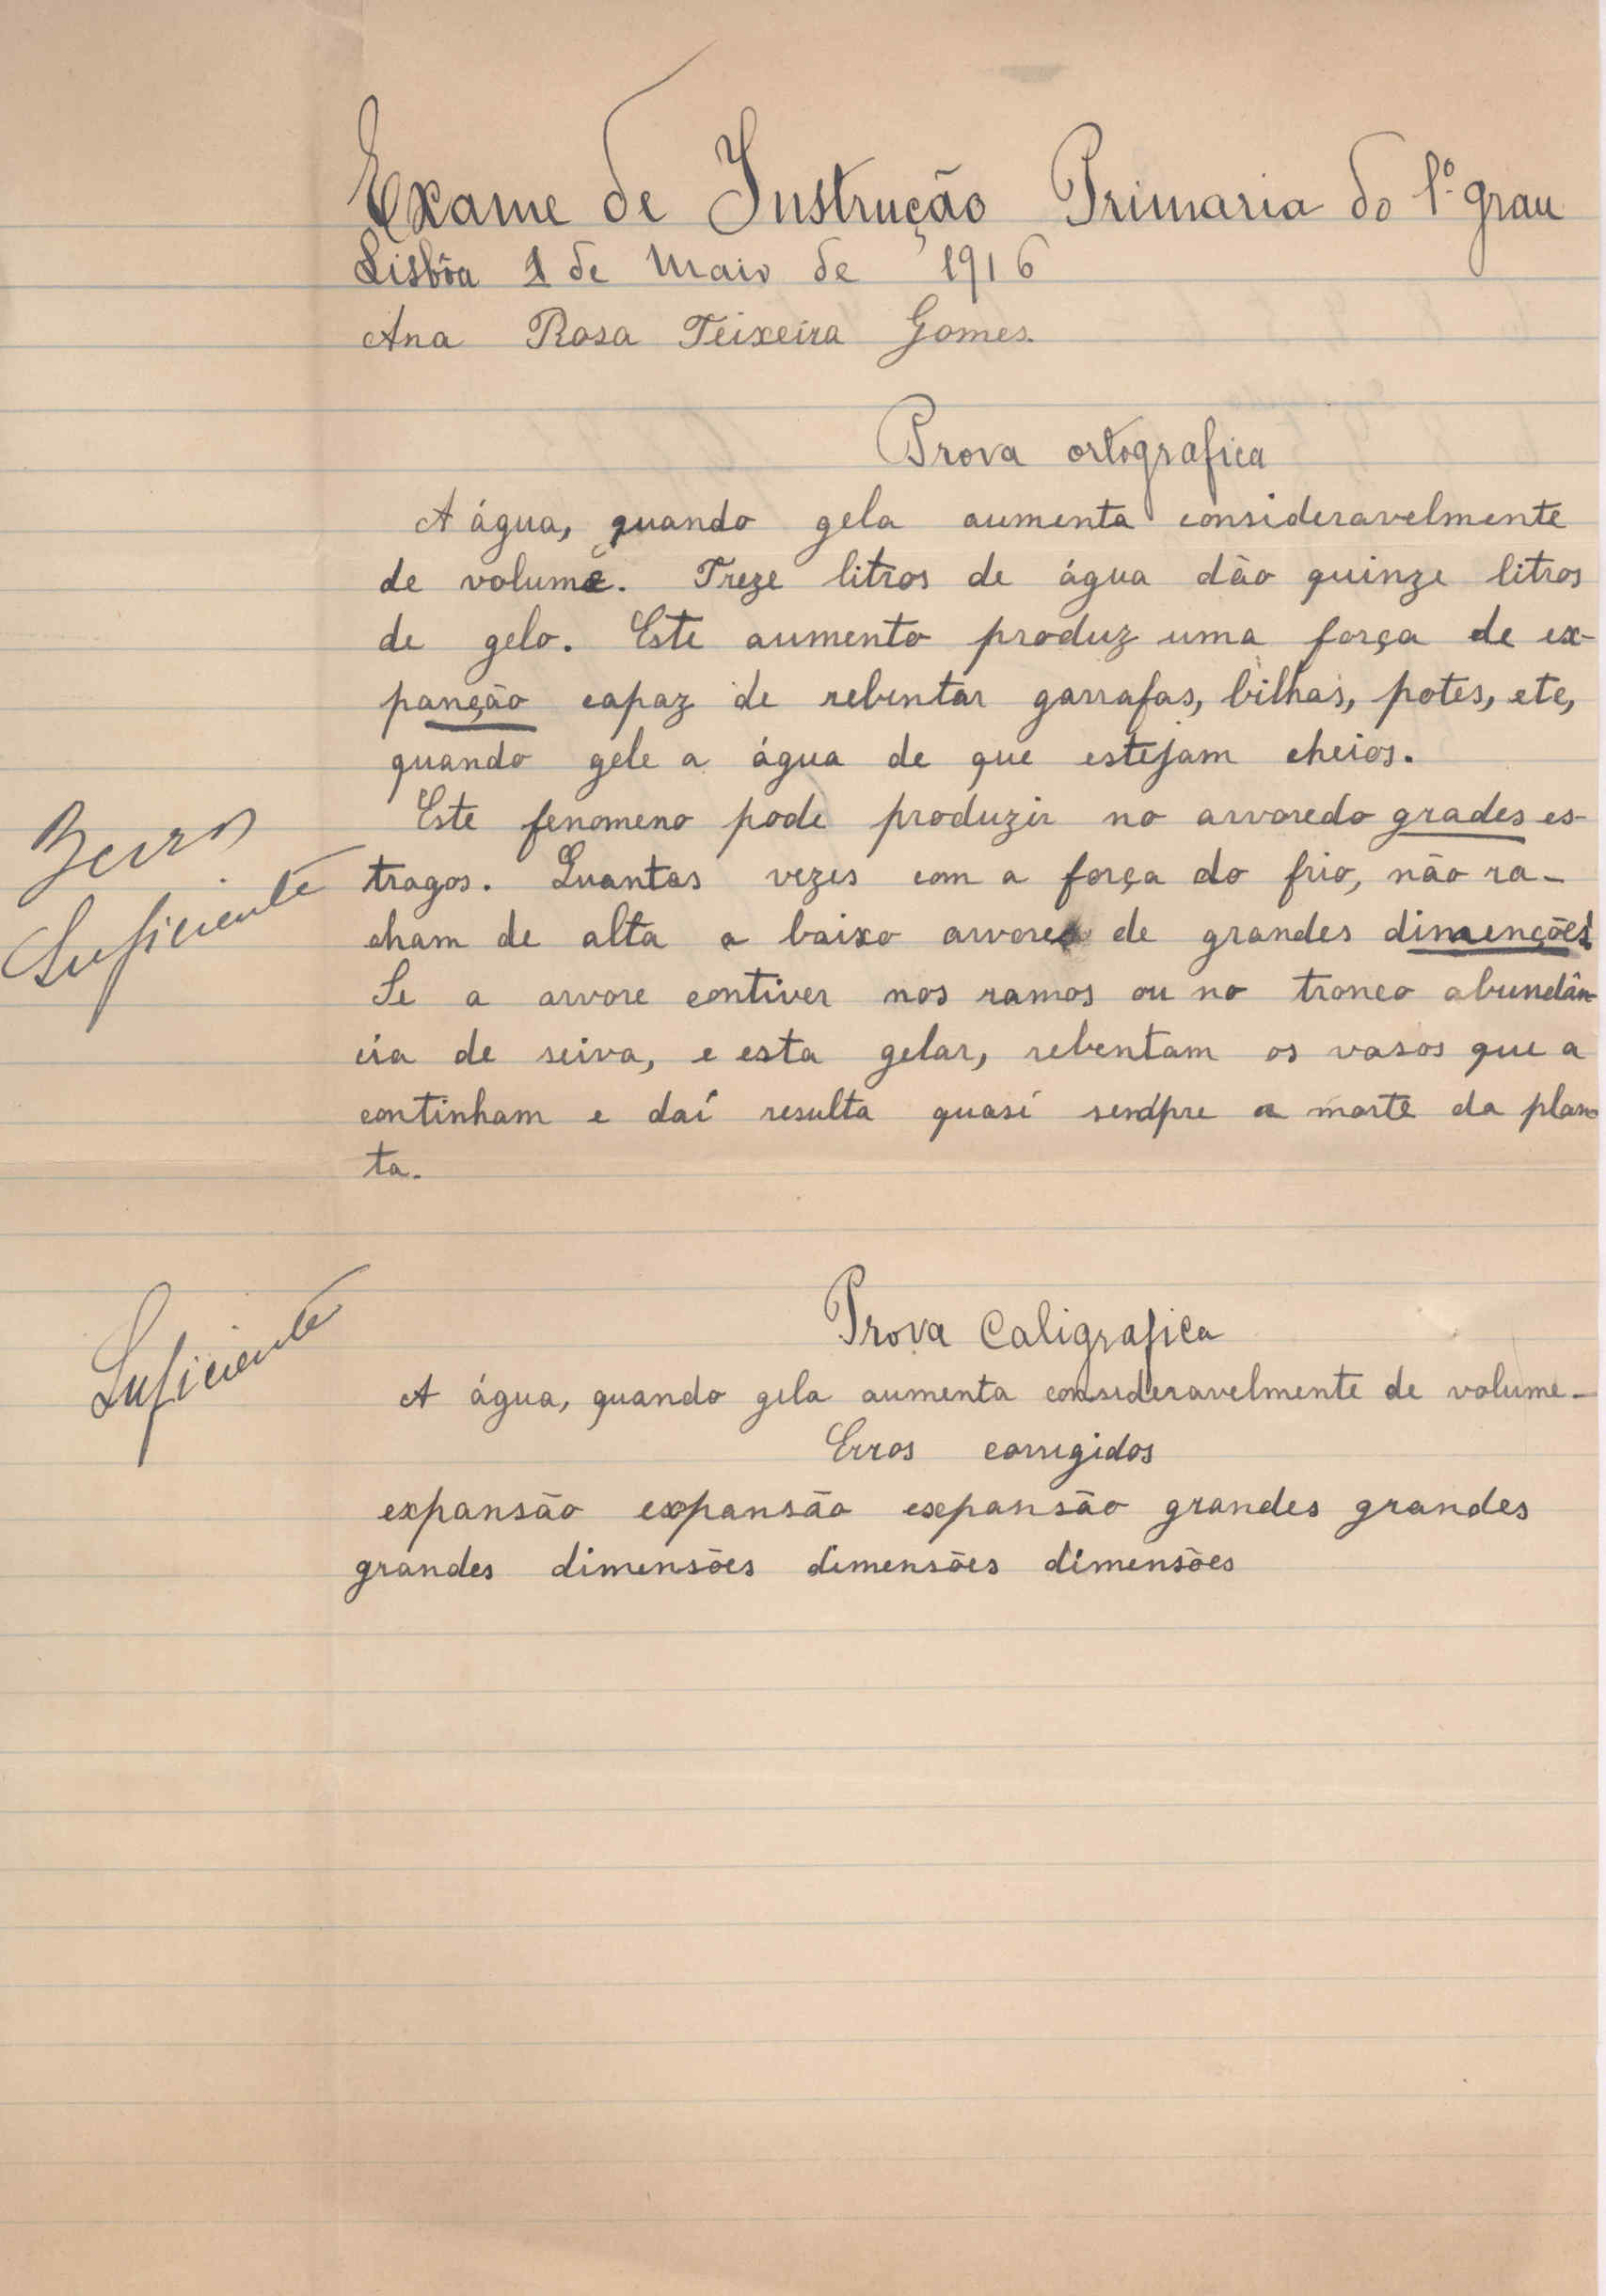 Exame de Instrução Primaria do 1º grau
Lisbôa 1 de Maio de 1916
Ana Rosa Teixeira Gomes.
Prova ortografica
A água, quando gela aumenta consideravelmente
de volume. Treze litros de água dão quinze litros
de gelo. Este aumento produz uma força de ex-
panção capaz de rebentar garrafas, bilhas, potes, etc,
quando gele a água de que estejam cheios.
Este fenomeno pode produzir no arvoredo grades es-
tragos. Quantas vezes com a força do frio, não ra-
cham de alta a baixo arvores de grandes dimenções
Se a arvore contiver nos ramos ou no tronco abundân
cia de seiva, e esta gelar, rebentam os vasos que a
continham e daí resulta quasi sempre a morte da plan
ta.
3 erros
Suficiente
Prova Caligrafica
Suficiente
A água, quando gela aumenta consideravelmente de volume-
Erros corrigidos
expansão expansão expansão grandes grandes
grandes dimensões dimensões dimensões